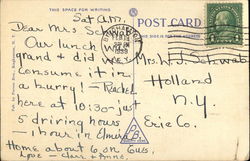 THIS SPACE FOR WRITING
POST CARD
Sat a.m.
Dear Mrs
Our lunch was
grand & did we
consume it in
a hurry! — Reached
here at 10:30 just
5 driving hours
— 1 hour in Elmira.
Home about 6 on Sun.
Love — Clara + Anne
Mrs. W. J. Schwab
Holland
N.Y.
Erie Co.